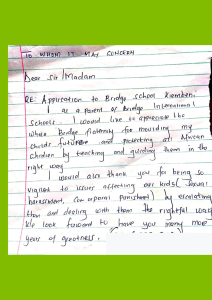 TO WHOM IT MAY CONCERN
Dear Sir/Madam
RE: Application to Bridge school
I as a parent of Bridge International
Schools. I would like to appreciate the
whole Bridge fraternity for moulding my
childs future and protecting all African
children by teaching and guiding them in the
right way
I would also thank you for being so
vigilant to issues affecting our kids (sexual
harassment, Corporal punishment) by escalating
them and dealing with them the rightful way
We look forward to have you many more
years of greatness.